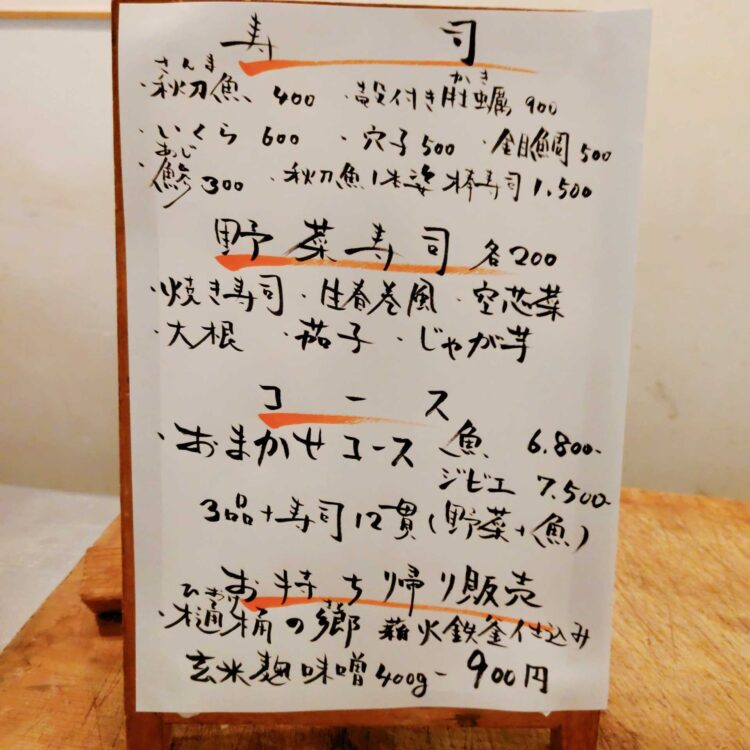 寿司
さんま かき
・秋刀魚 400 ・殻付き牡蠣 900
・いくら 600 ・穴子 500 ・金目鯛 500
あじ
・鯵 300 ・秋刀魚1本姿棒寿司 1,500
野菜寿司 各200
・焼き寿司 ・生春巻風 ・空芯菜
・大根 ・茄子 ・じゃが芋
コース
・おまかせコース 魚 6.800-
ジビエ 7.500-
3品+寿司12貫(野菜+魚)
お持ち帰り販売
ひおけ
・樋桶の郷 薪火鉄釜仕込み
玄米麹味噌 400g- 900円